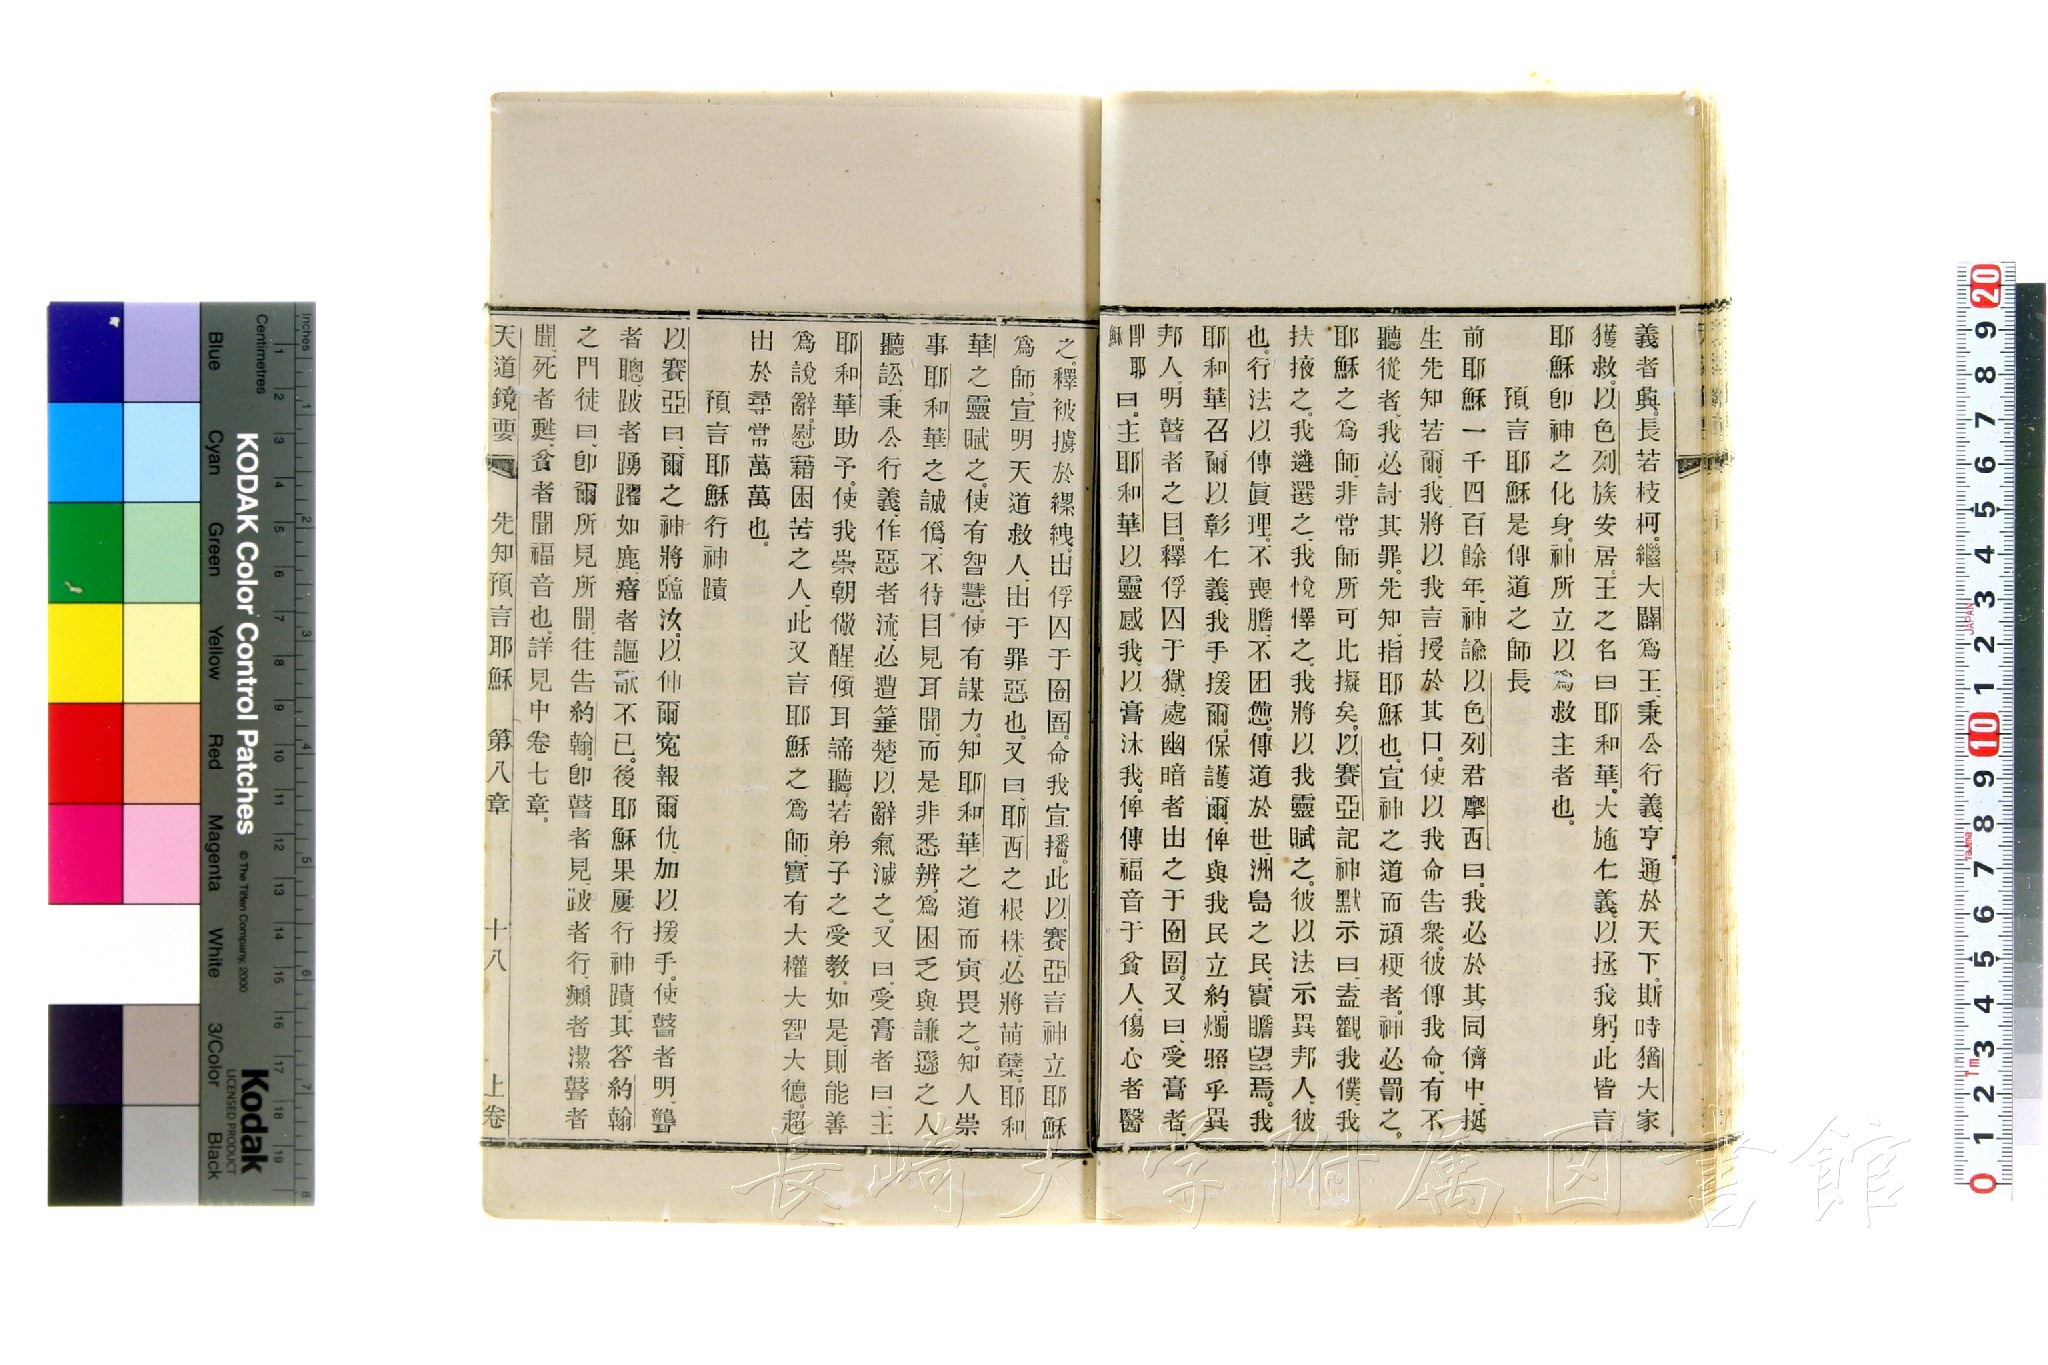 義者與。長若枝柯。繼大闢爲王。秉公行義。亨通於天下。斯時猶大家
獲救。以色列族安居。王之名曰耶和華。大施仁義。以拯我躬。此皆言
耶穌卽神之化身。神所立以爲救主者也。
預言耶穌是傳道之師長
前耶穌一千四百餘年、神諭以色列君摩西曰。我必於其同儕中、挺
生先知若爾、我將以我言授於其口。使以我命告衆。彼傳我命、有不
聽從者、我必討其罪。先知、指耶穌也。宣神之道而頑梗者。神必罰之。
耶穌之爲師、非常師所可比擬矣。以賽亞記神默示曰、盍觀我僕、我
扶掖之。我遴選之、我悅懌之、我將以我靈賦之。彼以法示異邦人。彼
也。行法以傳眞理。不喪膽、不困憊。傳道於世、洲島之民、實瞻望焉。我
耶和華召爾以彰仁義、我手援爾。保護爾。俾與我民立約。燭照乎異
邦人。明瞽者之目。釋俘囚于獄、處幽暗者出之于囹圄。又曰、受膏者、
卽耶穌曰。主耶和華以靈感我、以膏沐我。俾傳福音于貧人、傷心者醫
之。釋被擄於縲絏。出俘囚于囹圄。命我宣播。此以賽亞言神立耶穌
爲師、宣明天道救人、出于罪惡也。又曰、耶西之根株、必將萌櫱。耶和
華之靈賦之。使有智慧、使有謀力。知耶和華之道而寅畏之。知人崇
事耶和華之誠僞、不待目見耳聞、而是非悉辨。爲困乏與謙遜之人
聽訟、秉公行義。作惡者流、必遭箠楚、以辭氣滅之。又曰、受膏者曰、主
耶和華助予。使我崇朝儆醒傾耳諦聽、若弟子之受教、如是則能善
爲說辭。慰藉困苦之人、此又言耶穌之爲師、實有大權大智大德、超
出於尋常萬萬也。
預言耶穌行神蹟
以賽亞曰、爾之神將臨汝。以伸爾寃、報爾仇、加以援手。使瞽者明、聾
者聰、跛者踴躍如鹿、瘖者謳歌不已。後耶穌果屢行神蹟、其答約翰
之門徒曰、卽爾所見所聞、往告約翰。卽瞽者見、跛者行、癩者潔、聾者
聞、死者甦、貧者聞福音也。詳見中卷七章。
天道鏡要 先知預言耶穌 第八章 十八 上卷
長崎大学附属図書館
KODAK Color Control Patches © The Tiffen Company, 2000
Kodak
LICENSED PRODUCT
Inches 1 2 3 4 5 6 7 8
Centimetres 1 2 3 4 5 6 7 8 9 10 11 12 13 14 15 16 17 18 19
Blue Cyan Green Yellow Red Magenta White 3/Color Black
20 9 8 7 6 5 4 3 2 1 10 9 8 7 6 5 4 3 2 1 0
JAPAN